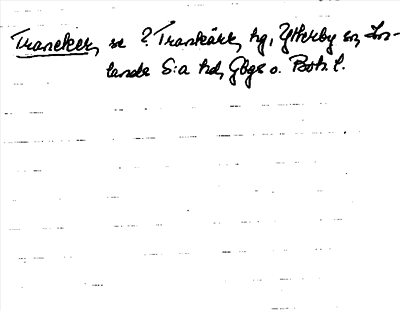 Trancker, se ? Trankärr, hg, Ytterby sn, In-
lands S:a hd, Gbgs o. Boh. l.